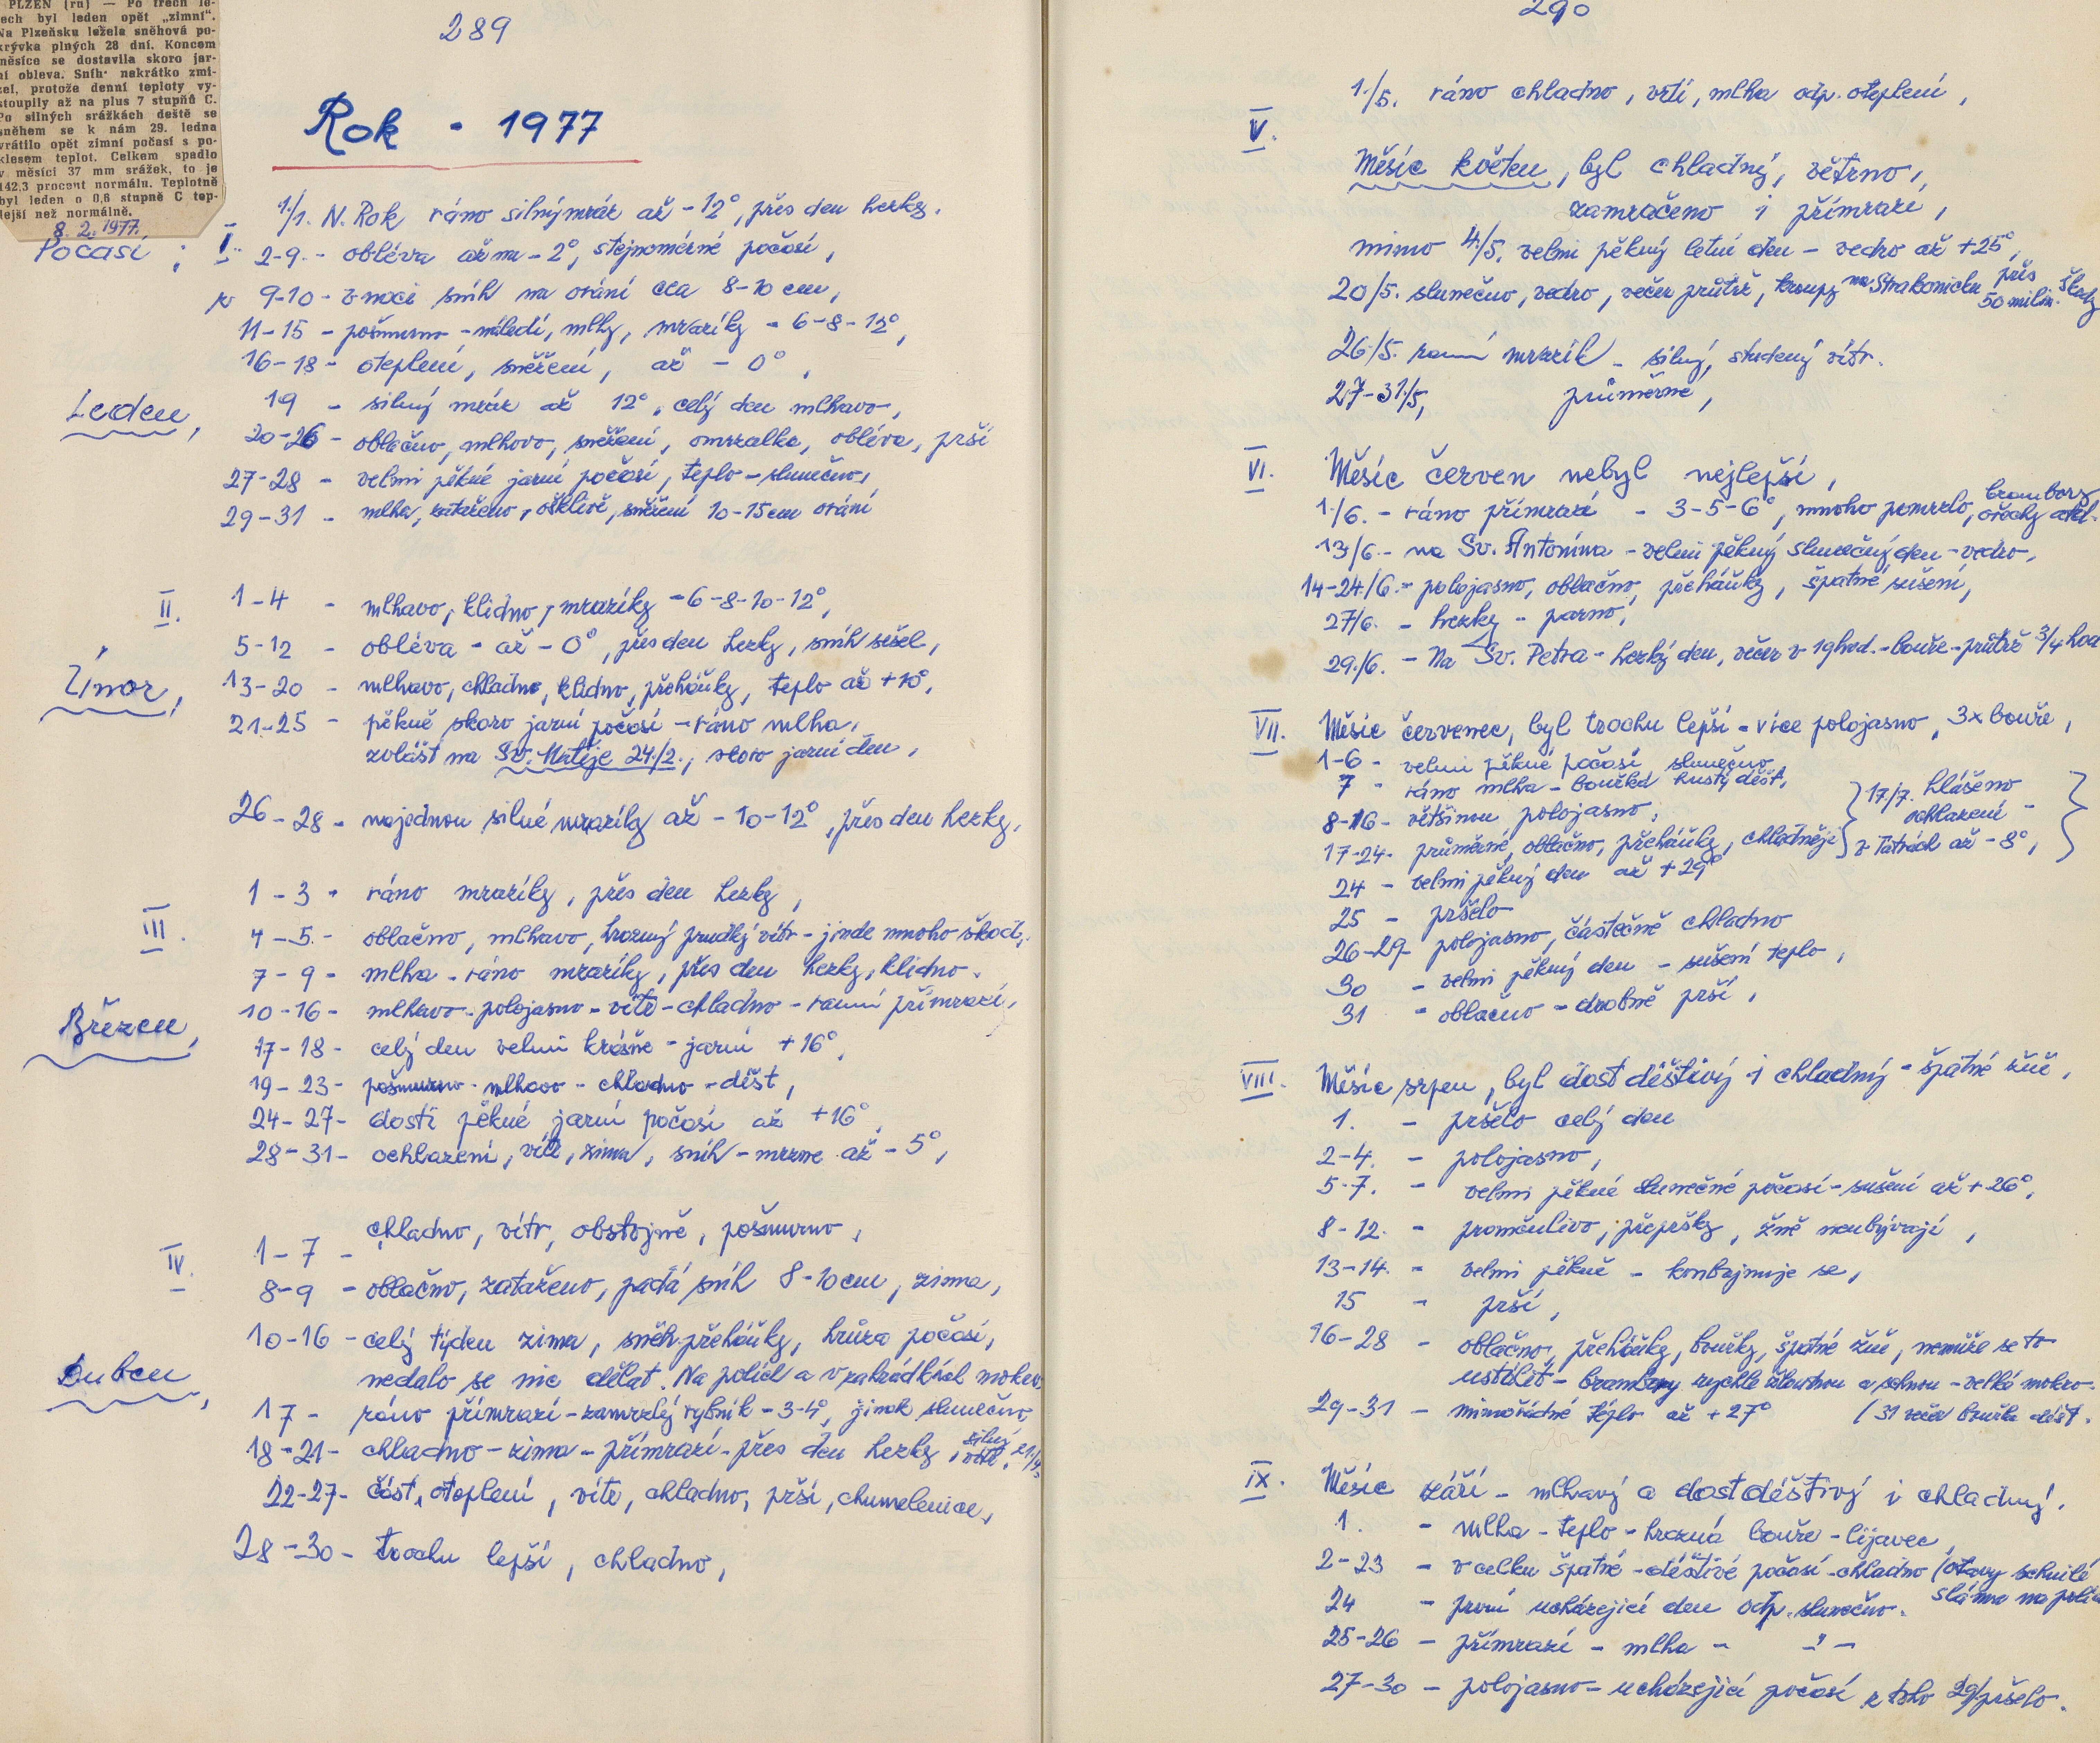 PLZEŇ (rn) — Po třech le-
tech byl leden opět „zimní“.
Na Plzeňsku ležela sněhová po-
krývka plných 28 dní. Koncem
měsíce se dostavila skoro jar-
ní obleva. Sníh nakrátko zmi-
zel, protože denní teploty vy-
stoupily až na plus 7 stupňů C.
Po silných srážkách deště se
sněhem se k nám 29. ledna
vrátilo opět zimní počasí s po-
klesem teplot. Celkem spadlo
v měsíci 37 mm srážek, to je
142,3 procent normálu. Teplotně
byl leden o 0,6 stupně C tep-
lejší než normálně.
8. 2. 1977.
289
Rok - 1977
Počasí ;
I.
1./1. N. Rok ráno silný mráz až -12°, přes den hezky.
2-9. - obléva až na -2°, stejnoměrné počasí,
9-10 - v noci sníh na orání cca 8-10 cm,
11-15 - pošmurno - náledí, mlhy, mrazíky - 6-8-12°,
16-18 - oteplení, sněžení, až - 0°,
Leden,
19 - silný mráz až 12°, celý den mlhavo,
20-26 - oblačno, mlhovo, sněžení, omrzalka, obléva, prší
27-28 - velmi pěkné jarní počasí, teplo - slunečno,
29-31 - mlha, zataženo, ošklivě, sněžení 10-15 cm orání
II.
1-4 - mlhavo, klidno, mrazíky -6-8-10-12°,
5-12 - obléva - až - 0°, přes den hezky, sníh sešel,
Únor,
13-20 - mlhavo, chladno, klidno, přeháňky, teplo až +10°,
21-25 - pěkně skoro jarní počasí - ráno mlha,
zvlášt na Sv. Matěje 24./2., skoro jarní den,
26-28 - najednou silné mrazíky až - 10-12°, přes den hezky,
III.
1-3 - ráno mrazíky, přes den hezky,
4-5 - oblačno, mlhavo, hrozný prudký vítr - jinde mnoho škod,
7-9 - mlha - ráno mrazíky, přes den hezky, klidno.
10-16 - mlhavo - polojasno - vítr - chladno - ranní přímrazí,
Březen,
17-18 - celý den velmi krásně - jarní +16°,
19-23 - pošmurno - mlhavo - chladno - déšt,
24-27 - dosti pěkné jarní počasí až +16°,
28-31 - ochlazení, vítr, zima, sníh - mrzne až - 5°,
IV.
1-7 - chladno, vítr, obstojně, pošmurno,
8-9 - oblačno, zataženo, padá sníh 8-10 cm, zima,
10-16 - celý týden zima, sněh. přeháňky, hrůza počasí,
nedalo se nic dělat. Na polích a v zahrádkách mokro
Duben,
17 - ráno přímrazí - zamrzlý rybník - 3-4°, jinak slunečno
18-21 - chladno - zima - přímrazí - přes den hezky, silný vítr, 21/4,
22-27 - část. oteplení, vítr, chladno, prší, chumelenice,
28-30 - trochu lepší, chladno,
290
1./5. ráno chladno, vrtí, mlha odp. oteplení,
V.
Měsíc květen, byl chladný, větrno,
zamračeno i přímraze,
mimo 4./5. velmi pěkný letní den - vedro až +25°,
20/5. slunečno, vedro, večer průtrž, kroupy na Strakonicku přes 50 milin. škody
26./5. ranní mrazík - silný, studený vítr.
27-31/5, průměrné,
VI.
Měsíc červen nebyl nejlepší,
1./6. - ráno přímrazí - 3-5-6°, mnoho pomrzlo, brambory, ořechy atd.
13/6. - na Sv. Antonína - velmi pěkný slunečný den - vedro,
14-24/6. - polojasno, oblačno, přeháňky, špatné sušení,
27/6. - hezky - parno,
29./6. - Na Sv. Petra - hezký den, večer v 19 hod. - bouře - průtrž 3/4 hod
VII.
Měsíc červenec, byl trochu lepší - více polojasno, 3x bouře,
1-6 - velmi pěkné počasí slunečno
7 - ráno mlha - bouřka hustý déšt,
8-16 - většinou polojasno,
17-24 - průměrné, oblačno, přeháňky, chladněji } 17/7. hlášeno ochlazení - v Tatrách až - 8°, }
24 - velmi pěkný den až +29°
25 - pršelo
26-29 - polojasno, částečně chladno
30 - velmi pěkný den - sušení teplo,
31 - oblačno - drobně prší,
VIII.
Měsíc srpen, byl dost déštivý i chladný - špatné žně,
1. - pršelo celý den
2-4. - polojasno,
5-7. - velmi pěkné slunečné počasí - sušení až + 26°,
8-12. - proměnlivo, přepršky, žně neubývají,
13-14. - velmi pěkně - kombajnuje se,
15 - prší,
16-28 - oblačno, přeháňky, bouřky, špatné žně, nemůže se to
ustálit - brambory rychle žloutnou a schnou - velké mokro.
29-31 - mimořádné téplo až +27° (31 večer bouřka déšt.
IX.
Měsíc září - mlhavý a dost déštivý i chladný.
1. - mlha - teplo - hrozná bouře - lijavec,
2-23 - v celku špatné - déštivé počasí - chladno (otavy schnilé
sláma na polích
24 - první ucházející den odp. slunečno.
25-26 - přímrazí - mlha - -"-
27-30 - polojasno - ucházející počasí z toho 29/ pršelo.